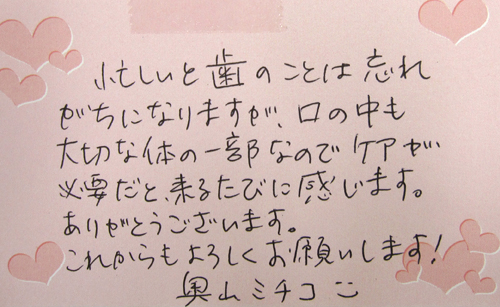 忙しいと歯のことは忘れ
がちになりますが、口の中も
大切な体の一部なのでケアが
必要だと、来るたびに感じます。
ありがとうございます。
これからもよろしくお願いします!
奥山ミチコ